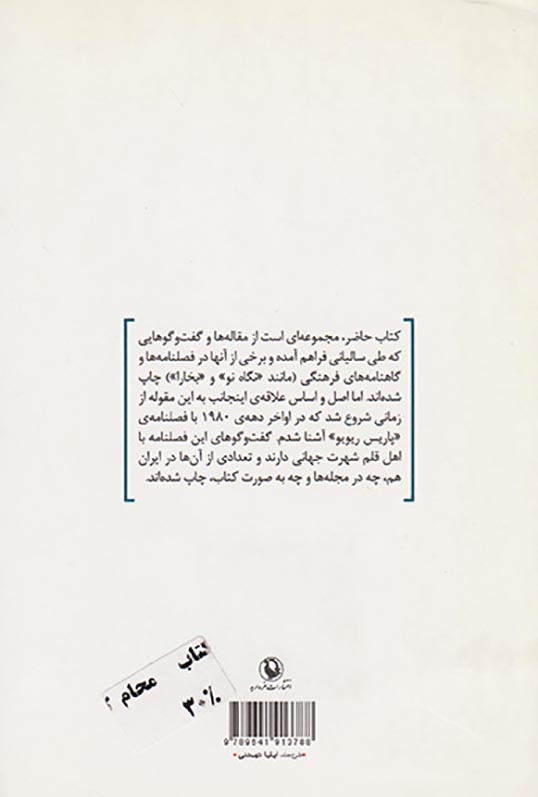 کتاب حاضر، مجموعه‌ای است از مقاله‌ها و گفت‌وگوهایی
که طی سالیانی فراهم آمده و برخی از آنها در فصلنامه‌ها و
گاهنامه‌های فرهنگی (مانند «نگاه نو» و «بخارا») چاپ
شده‌اند. اما اصل و اساس علاقه‌ی اینجانب به این مقوله از
زمانی شروع شد که در اواخر دهه‌ی ۱۹۸۰ با فصلنامه‌ی
«پاریس ریویو» آشنا شدم. گفت‌وگوهای این فصلنامه با
اهل قلم شهرت جهانی دارند و تعدادی از آن‌ها در ایران
هم، چه در مجله‌ها و چه به صورت کتاب، چاپ شده‌اند.
کتاب محام
۳۰٪
انتشارات مروارید
9789641913788
طرح جلد: ایلیا تهمتنی